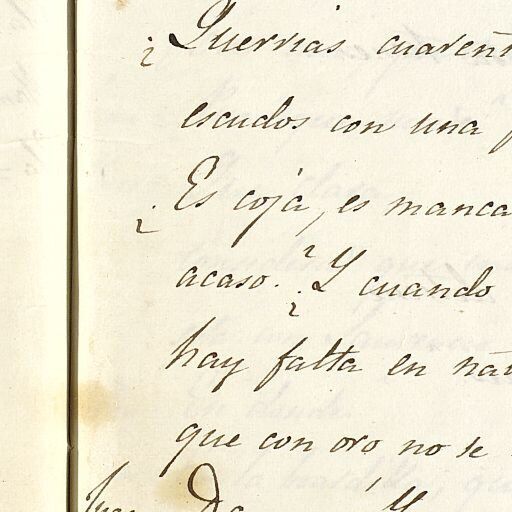 ¿Querrias cuareñ
escudos con una
¿Es coja, es manca
acaso? ¿Y cuando
hay falta en na
que con oro no se